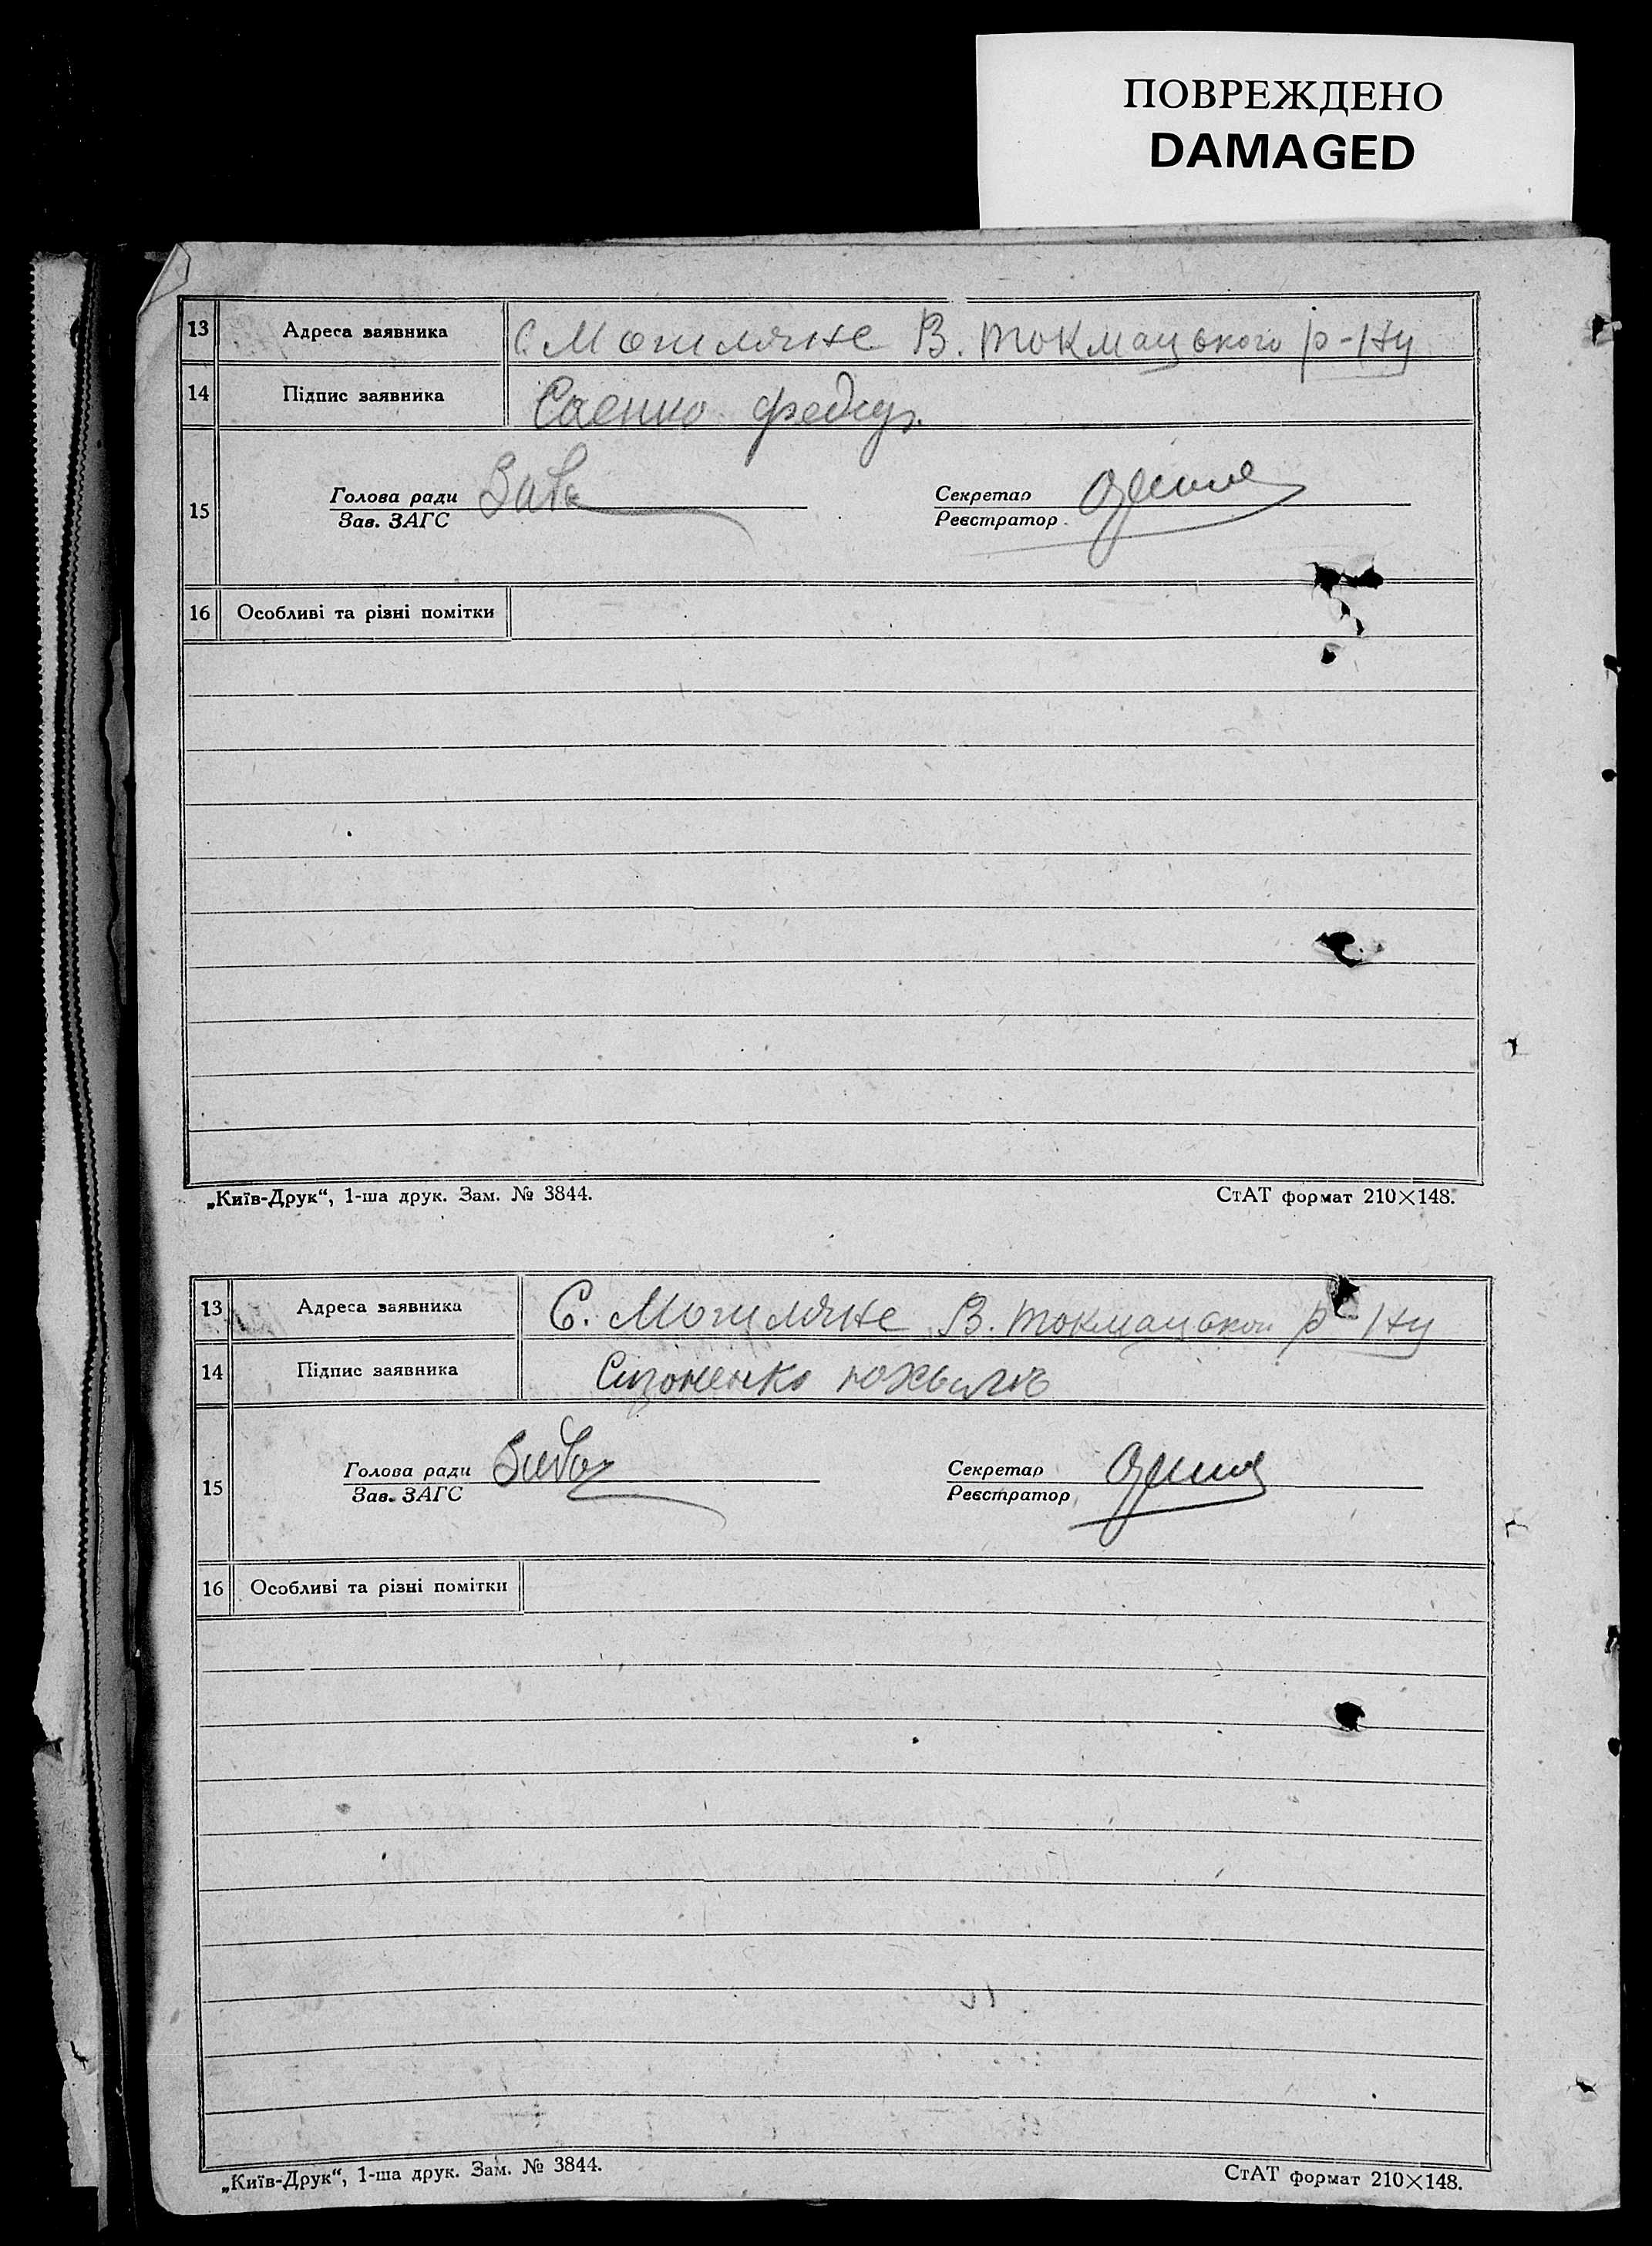 ПОВРЕЖДЕНО
DAMAGED
13 Адреса заявника С. Могиляне В. Токмацького р-ну
14 Підпис заявника Саенко
15 Голова ради
Зав. ЗАГС
Секретар
Реєстратор
16 Особливі та різні помітки
„Київ-Друк“, 1-ша друк. Зам. № 3844. СтАТ формат 210×148.
13 Адреса заявника С. Могиляне В. Токмацьког р-ну
14 Підпис заявника Сизоненко
15 Голова ради
Зав. ЗАГС
Секретар
Реєстратор
16 Особливі та різні помітки
„Київ-Друк“, 1-ша друк. Зам. № 3844. СтАТ формат 210×148.